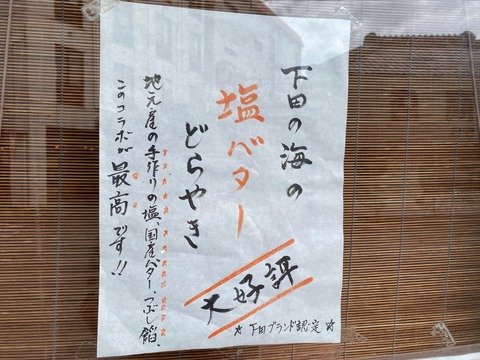 下田の海の
塩バター
どらやき
大好評
☆下田ブランド認定☆
地元産の手作りの塩、国産バター、つぶし餡、
このコラボが最高です!!